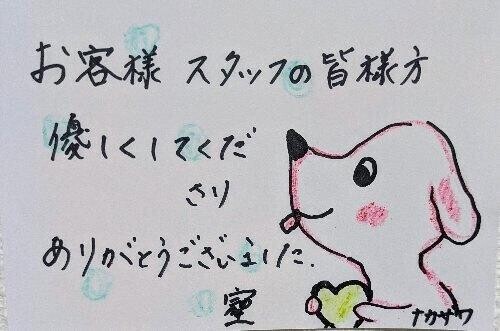 お客様 スタッフの皆様方
優しくしてくだ
さり
ありがとうございました.
ナカザワ